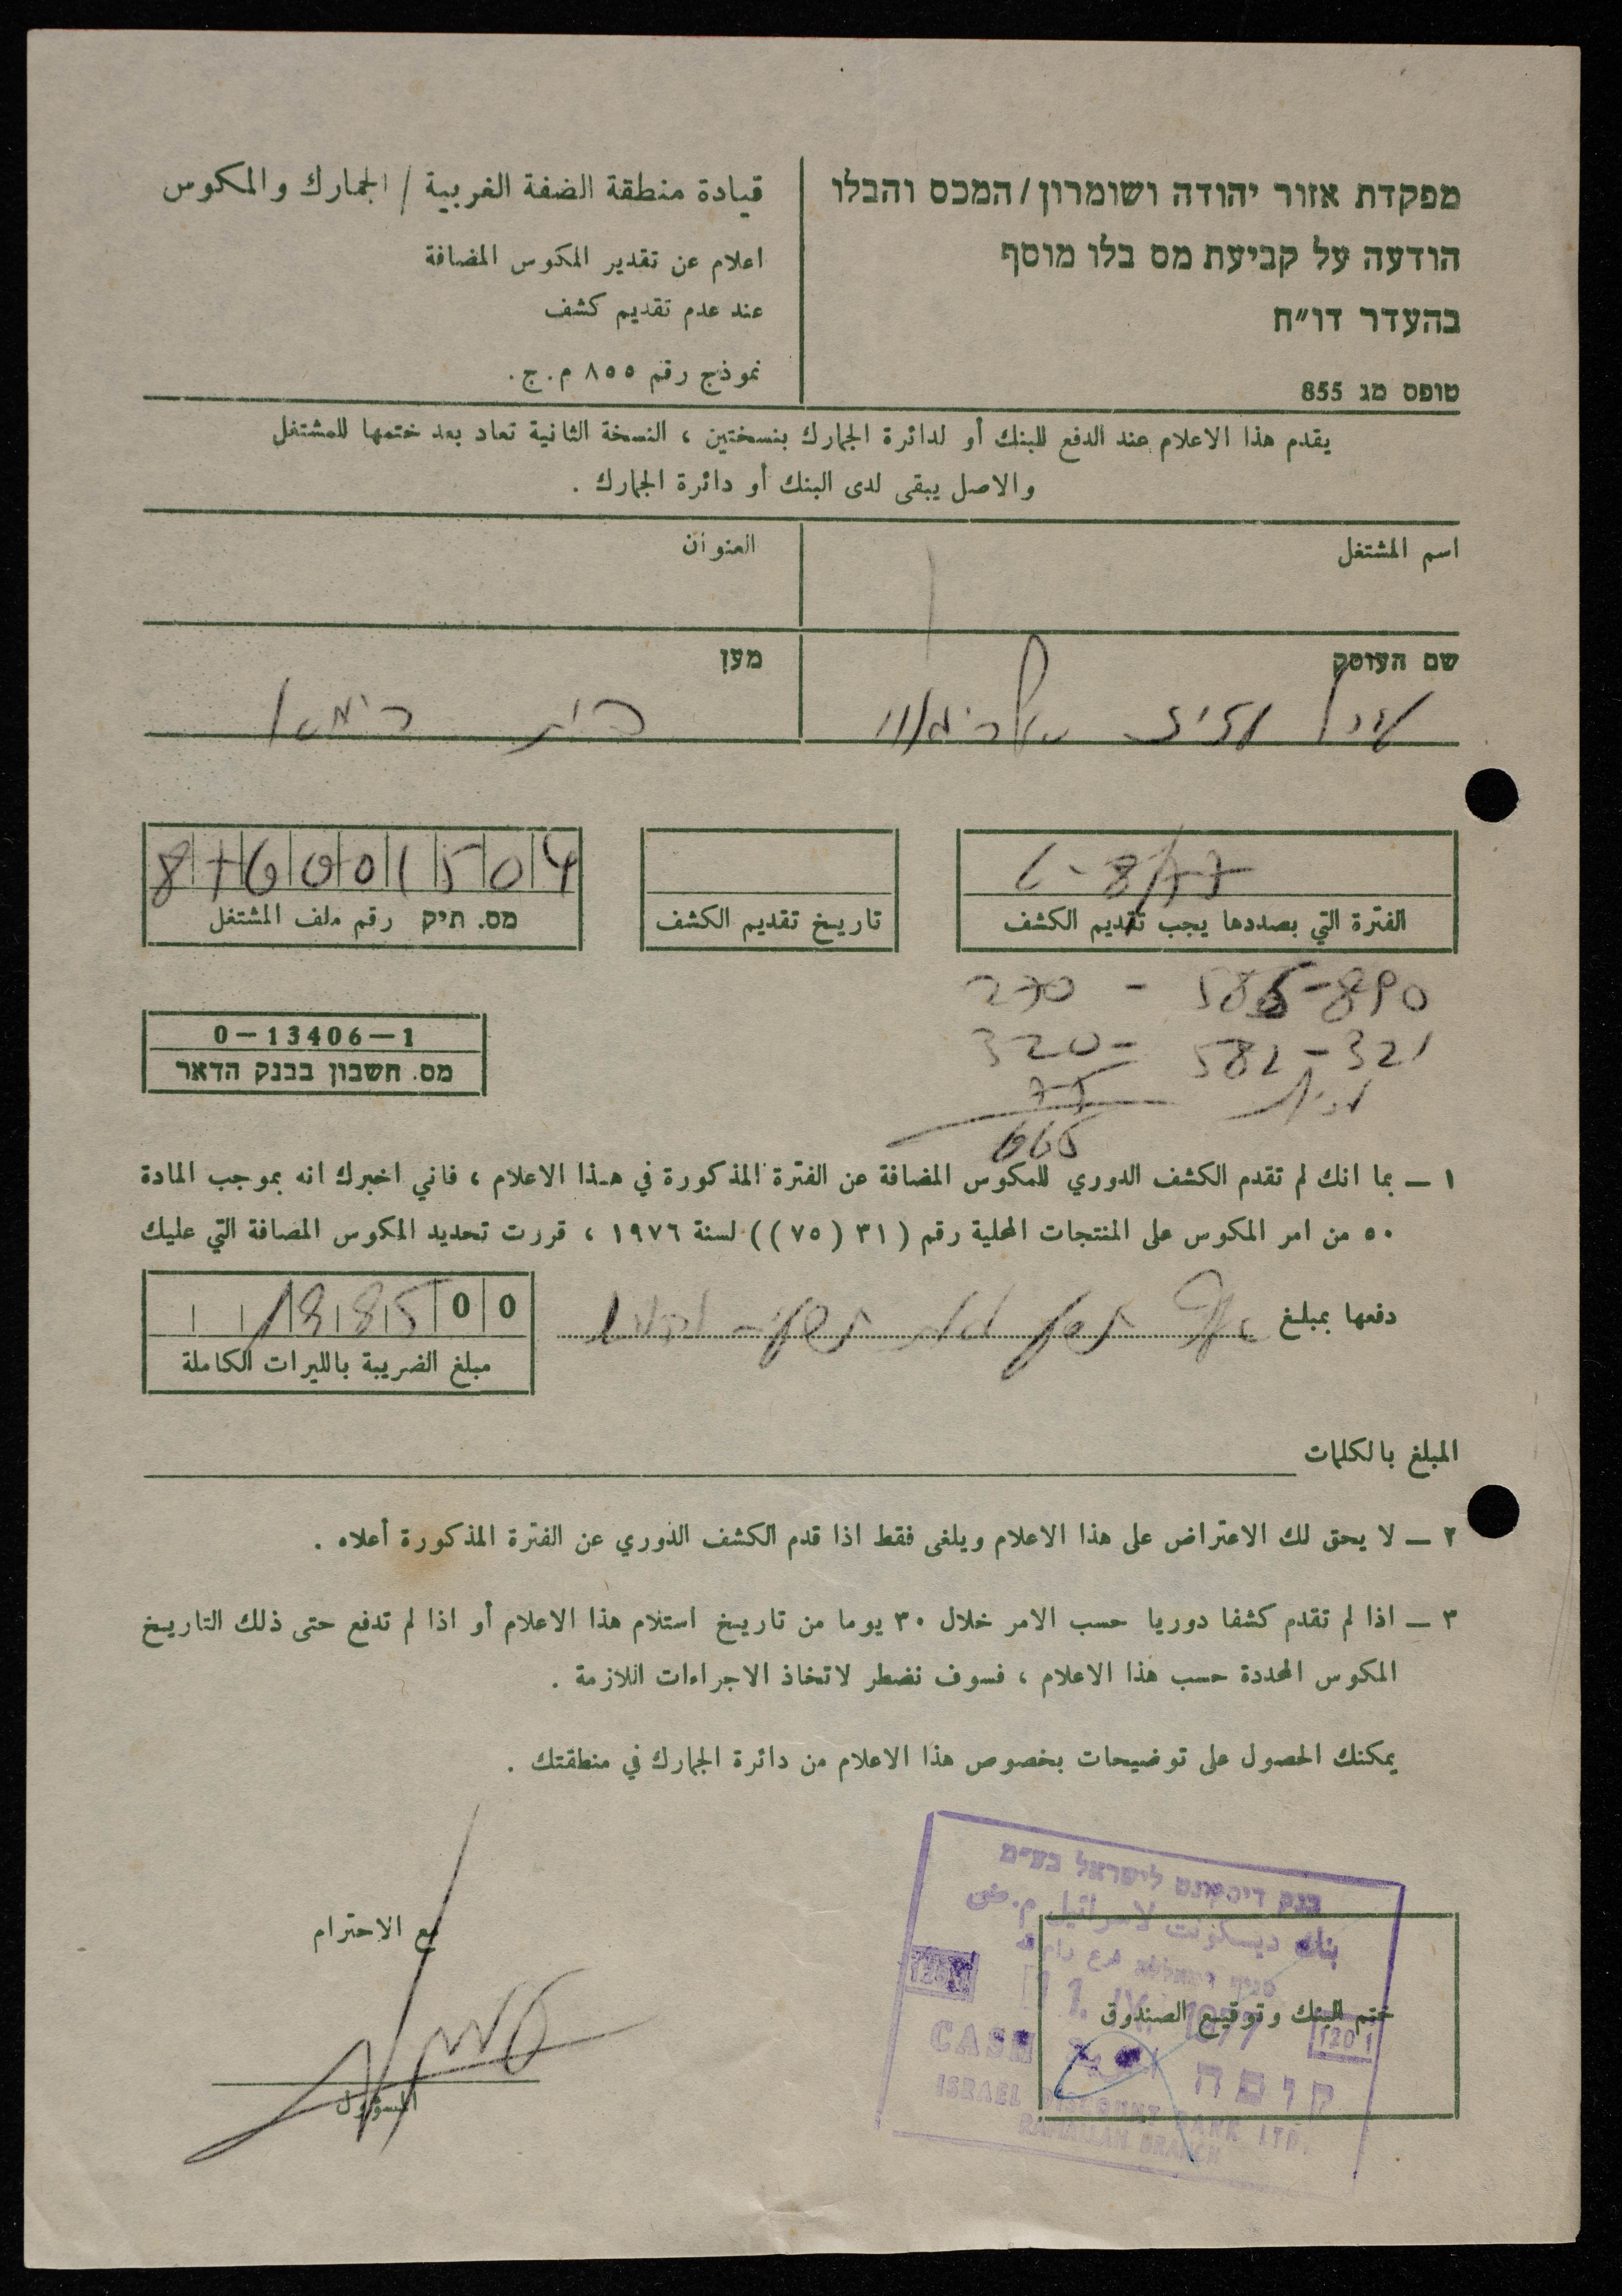 מפקדת אזור יהודה ושומרון/המכס והבלו
הודעה על קביעת מס בלו מוסף
בהעדר דו״ח
טופס מג 855
قيادة منطقة الضفة الغربية / الجمارك والمكوس
اعلام عن تقدير المكوس المضافة
عند عدم تقديم كشف
نموذج رقم ٨٥٥ م.ج.
يقدم هذا الاعلام عند الدفع للبنك أو لدائرة الجمارك بنسختين ، النسخة الثانية تعاد بعد ختمها للمشتغل
والاصل يبقى لدى البنك أو دائرة الجمارك .
اسم المشتغل
العنوان
שם העוסק
מען
8/77
الفترة التي بصددها يجب تقديم الكشف
تاريخ تقديم الكشف
876001504
מס. תיק رقم ملف المشتغل
270 - 586-890
320 - 582-321
77
665
0-13406-1
מס. חשבון בבנק הדאר
١ ــ بما انك لم تقدم الكشف الدوري للمكوس المضافة عن الفترة المذكورة في هـذا الاعلام ، فاني اخبرك انه بموجب المادة
٥٠ من امر المكوس على المنتجات المحلية رقم (٣١ (٧٥)) لسنة ١٩٧٦ ، قررت تحديد المكوس المضافة التي عليك
دفعها بمبلغ
00
مبلغ الضريبة بالليرات الكاملة
المبلغ بالكلمات
٢ ــ لا يحق لك الاعتراض على هذا الاعلام ويلغى فقط اذا قدم الكشف الدوري عن الفترة المذكورة أعلاه .
٣ ــ اذا لم تقدم كشفا دوريا حسب الامر خلال ٣٠ يوما من تاريخ استلام هذا الاعلام أو اذا لم تدفع حتى ذلك التاريخ
المكوس المحددة حسب هذا الاعلام ، فسوف نضطر لاتخاذ الاجراءات اللازمة .
يمكنك الحصول على توضيحات بخصوص هذا الاعلام من دائرة الجمارك في منطقتك .
مع الاحترام
المسؤول
בנק דיסקונט לישראל בע״מ
بنك ديسكونت لاسرائيل م.ض
1977
ختم البنك وتوقيع الصندوق
1201
CASH
קופה
ISRAEL DISCOUNT BANK LTD.
RAMALLAH BRANCH